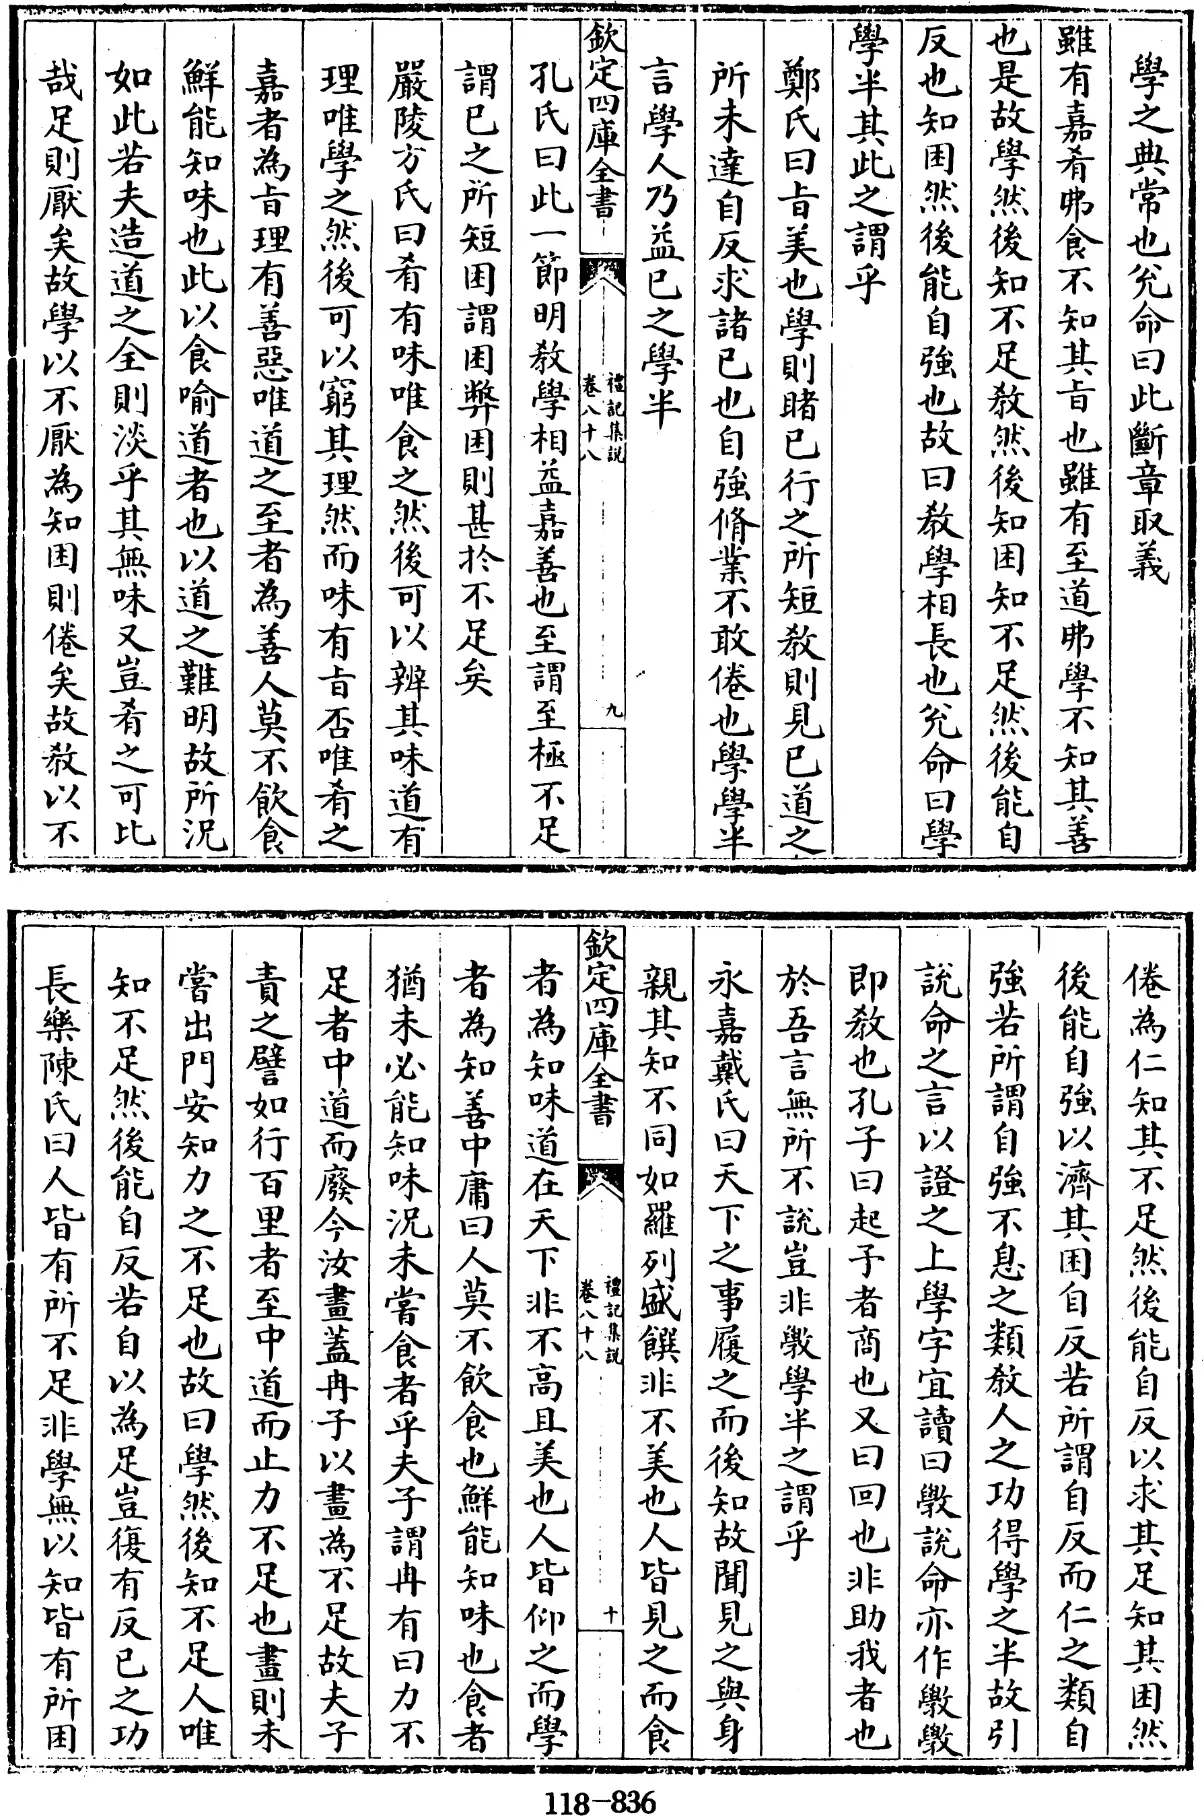 學之典常也兊命曰此斷章取義
雖有嘉肴弗食不知其㫖也雖有至道弗學不知其善
也是故學然後知不足教然後知困知不足然後能自
反也知困然後能自強也故曰教學相長也兊命曰學
學半其此之謂乎
鄭氏曰㫖美也學則睹己行之所短教則見己道之
所未達自反求諸己也自強脩業不敢倦也學學半
言學人乃益己之學半
欽定四庫全書
禮記集說
卷八十八
九
孔氏曰此一節明教學相益嘉善也至謂至極不足
謂己之所短困謂困弊困則甚於不足矣
嚴陵方氏曰肴有味唯食之然後可以辨其味道有
理唯學之然後可以窮其理然而味有㫖否唯肴之
嘉者為㫖理有善惡唯道之至者為善人莫不飲食
鮮能知味也此以食喻道者也以道之難明故所況
如此若夫造道之全則淡乎其無味又豈肴之可比
哉足則厭矣故學以不厭為知困則倦矣故教以不
倦為仁知其不足然後能自反以求其足知其困然
後能自強以濟其困自反若所謂自反而仁之類自
強若所謂自強不息之類教人之功得學之半故引
說命之言以證之上學字宜讀曰斆說命亦作斆斆
即教也孔子曰起予者商也又曰回也非助我者也
於吾言無所不說豈非斆學半之謂乎
永嘉戴氏曰天下之事履之而後知故聞見之與身
親其知不同如羅列盛饌非不美也人皆見之而食
欽定四庫全書
禮記集說
卷八十八
十
者為知味道在天下非不高且美也人皆仰之而學
者為知善中庸曰人莫不飲食也鮮能知味也食者
猶未必能知味況未嘗食者乎夫子謂冉有曰力不
足者中道而廢今汝畫蓋冉子以畫為不足故夫子
責之譬如行百里者至中道而止力不足也畫則未
嘗出門安知力之不足也故曰學然後知不足人唯
知不足然後能自反若自以為足豈復有反己之功
長樂陳氏曰人皆有所不足非學無以知皆有所困
118-836